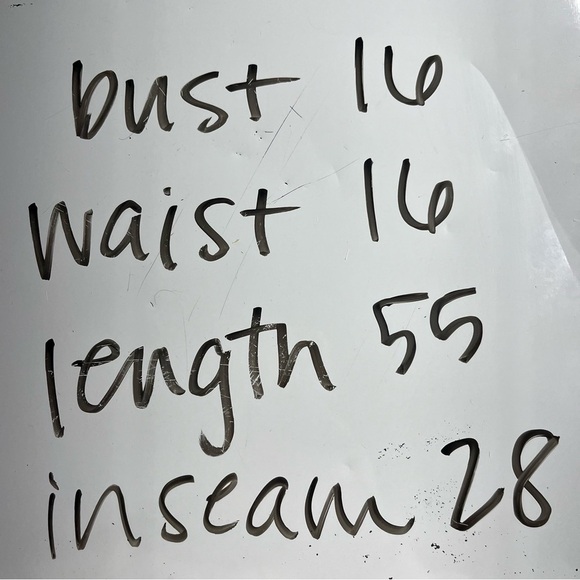 bust 16
waist 16
length 55
inseam 28